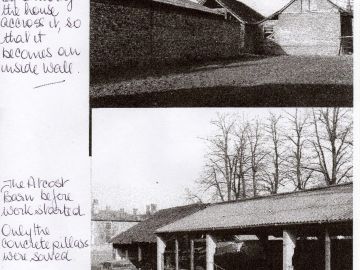 the house
accross it, so
that it
becomes an
inside wall.
The Atcost
Barn before
work started
Only the
concrete pillars
were saved